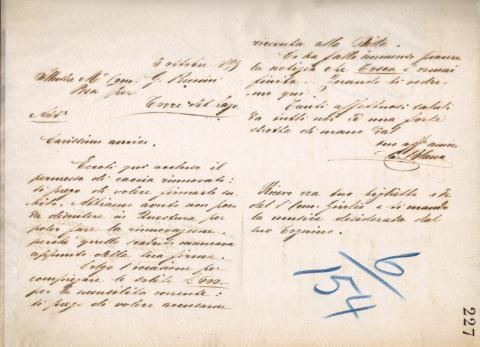 3 ottobre 189
Illustre Mo Com. G. Puccini
Pisa per
Torre del Lago
Carissimo amico.
Eccoti qui accluso il
permesso di caccia rinnovato:
ti prego di volere firmarlo su-
bito. Abbiamo avuto non poco
da discutere in Questura per
poter fare la rinnovazione
perchè quello scaduto mancava
appunto della tua firma.
Colgo l'occasione per
compiegare le solite L.
per la mensilità corrente:
ti prego di volere accusarne
ricevuta alla Ditta.
Ci ha fatto immenso piacere
la notizia che Tosca è ormai
finita. Quando ti vedre-
mo qui?
Tanti affettuosi saluti
da tutti noi ed una forte
stretta di mano dal
tuo aff. amico
C. Blanc
Ricevo ora tuo biglietto
del Sig. Giulio e si manda
la musica desiderata dal
tuo
6/
154
227